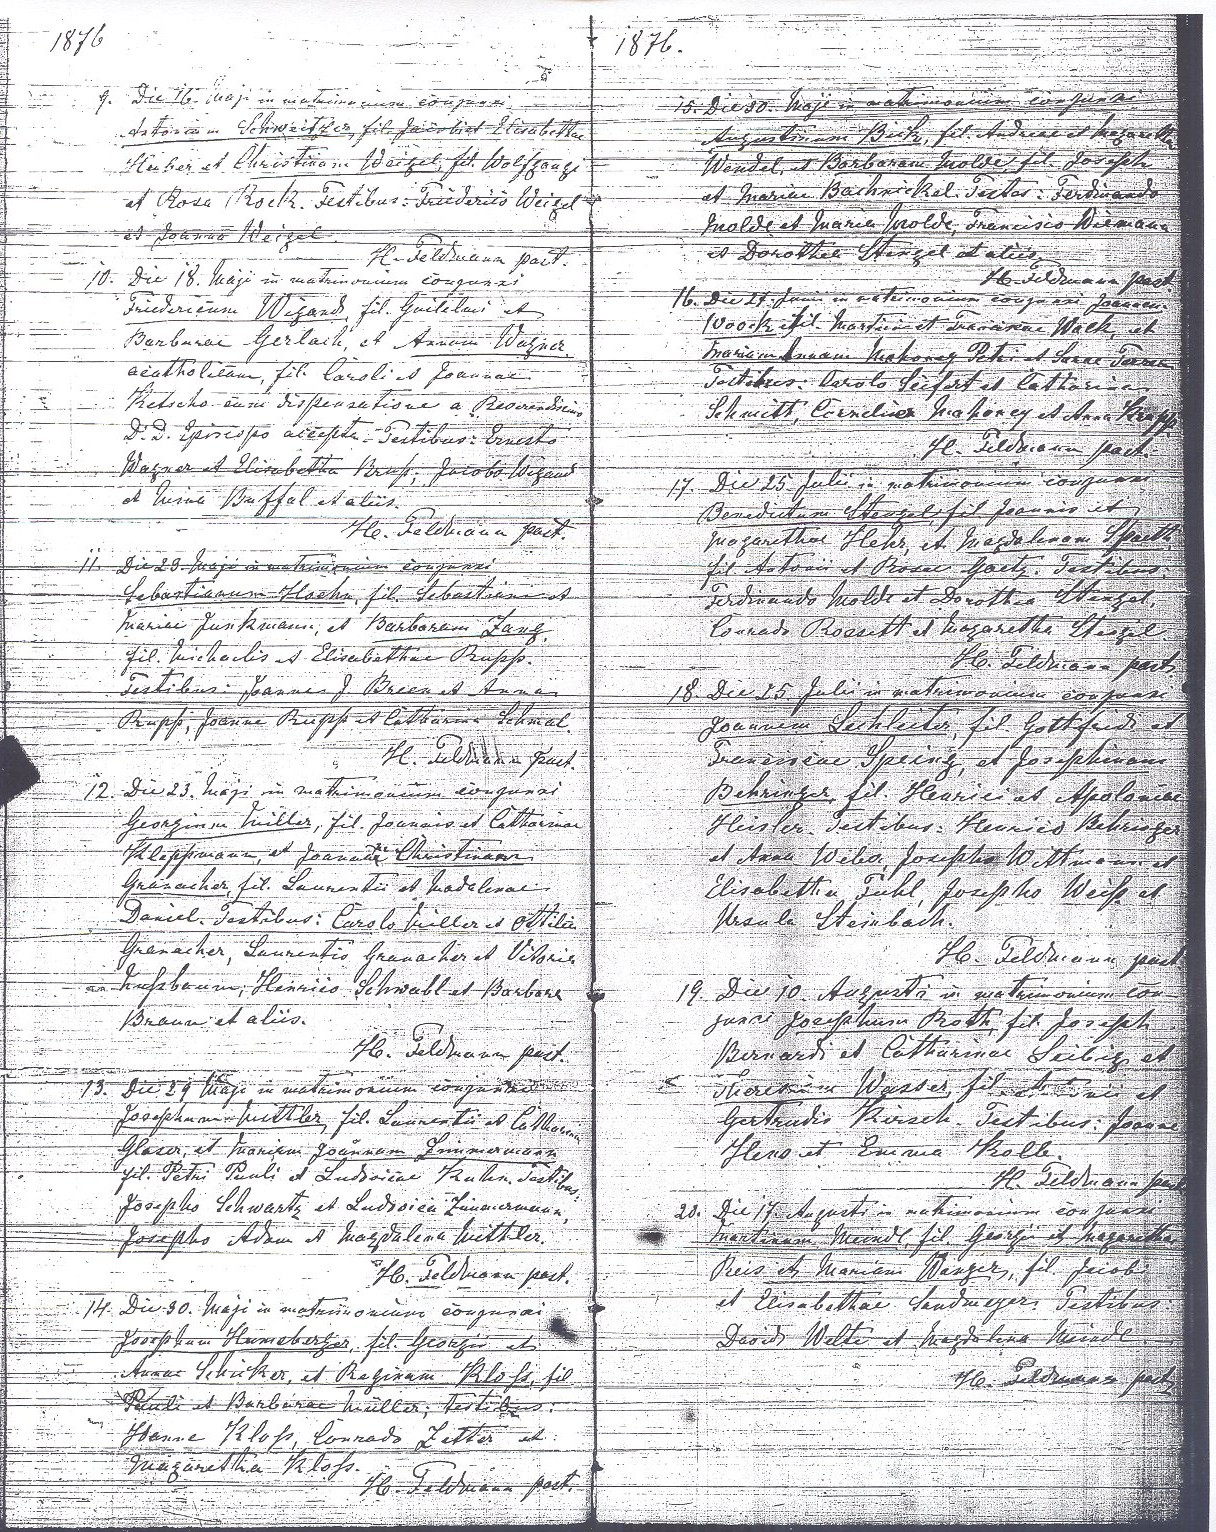 1876
9. Die 16. Maji in matrimonium conjunxi
Antonium Schweitzer, fil. Jacobi et Elisabethae
Huber et Christinam Weigel, fil. Wolfgangi
et Rosa Rock. Testibus: Friderico Weigel
et Joanna Weigel.
H. Feldmann past.
10. Die 18. Maji in matrimonium conjunxi
Fridericum Wigand, fil. Guilelmi et
Barbarae Gerlach, et Annam Wagner,
acatholicam, fil. Caroli et Joannae
Ketscho cum dispensatione a Reverendissimo
D. D. Episcopo accepta. Testibus: Ernesto
Wagner et Elisabetha Krup, Jacobo Wigand
et Mina Buffal et aliis.
H. Feldmann past.
11. Die 23. Maji in matrimonium conjunxi
Sebastianum Hoehn, fil. Sebastiani et
Mariae Junkmann, et Barbaram Zang,
fil. Michaelis et Elisabethae Rupp.
Testibus: Joanne J. Breen et Anna
Rupp, Joanne Rupp et Catharina Schmal.
H. Feldmann past.
12. Die 23. Maji in matrimonium conjunxi
Georgium Miller, fil. Joannis et Catharinae
Kleppmann, et Joannam Christinam
Granacher, fil. Laurentii et Madalenae
Daniel. Testibus: Carolo Miller et Ottilia
Granacher, Laurentio Granacher et Vitoria
Nußbaum, Henrico Schwabl et Barbara
Braun et aliis.
H. Feldmann past.
13. Die 29 Maji in matrimonium conjunxi
Josephum Mittler, fil. Laurentii et Catharinae
Glaser, et Mariam Joannam Zimmermann
fil. Petri Pauli et Ludovicae Kuhn. Testibus:
Josepho Schwartz et Ludovica Zimmermann,
Josepho Adam et Magdalena Mittler.
H. Feldmann past.
14. Die 30. Maji in matrimonium conjunxi
Josephum Hunneberger, fil. Georgii et
Annae Schicker, et Reginam Kloß, fil
Pauli et Barbarae Müller; testibus:
Hanne Kloß, Conrado Zetter et
Magaretha Kloß.
H. Feldmann past.
1876.
15. Die 30. Maji in matrimonium conjunxi
Augustinum Bick, fil. Andreae et Magaretha
Wendel, et Barbaram Molde, fil. Joseph
et Mariae Bachnickel. Testes: Ferdinando
Molde et Maria Molde, Francisco Wiemann
et Dorothea Stenzel et aliis.
H. Feldmann past
16. Die 27. Junii in matrimonium conjunxi Joannem
Woock, fil. Martini et Franciscae Walk, et
Mariam Annam Mahoney Petri et Sarae
Testibus: Carolo Seifert et Catharina
Schmitt, Cornelius Mahoney et Anna Krapp
H. Feldmann past.
17. Die 25 Julii in matrimonium conjunxi
Benedictum Stenzel, fil Joannis et
Magarethae Hehr, et Magdalenam Spaeth
fil. Antonii et Rosae Goetz. Testibus:
Ferdinando Molde et Dorothea Stenzel,
Conrado Rossett et Magaretha Stenzel
H. Feldmann past.
18. Die 25 Julii in matrimonium conjunxi
Joannem Lechleiter, fil Gottfridi et
Franciscae Speinz, et Josephinam
Behringer, fil. Henrici et Apoloniae
Heisler. Testibus: Henrico Behringer
et Anna Wibo, Josepho Wittmann et
Elisabetha Fuhl, Josepho Weiß et
Ursula Steinbach.
H. Feldmann past
19. Die 10. Augusti in matrimonium con-
junxi Josephum Roth, fil. Joseph
Bernardi et Catharinae Seibig et
Theresiam Wasser, fil. Antonii et
Gertrudis Kirsch. Testibus: Joanne
Hens et Emma Kolb.
H. Feldmann past
20. Die 17. Augusti in matrimonium conjunxi
Martinum Meindl, fil. Georgii et Magaretha
Reis et Mariam Wanger, fil. Jacobi
et Elisabethae Sandmeyer. Testibus:
David Welte et Magdalena Meindl
H. Feldmann past.